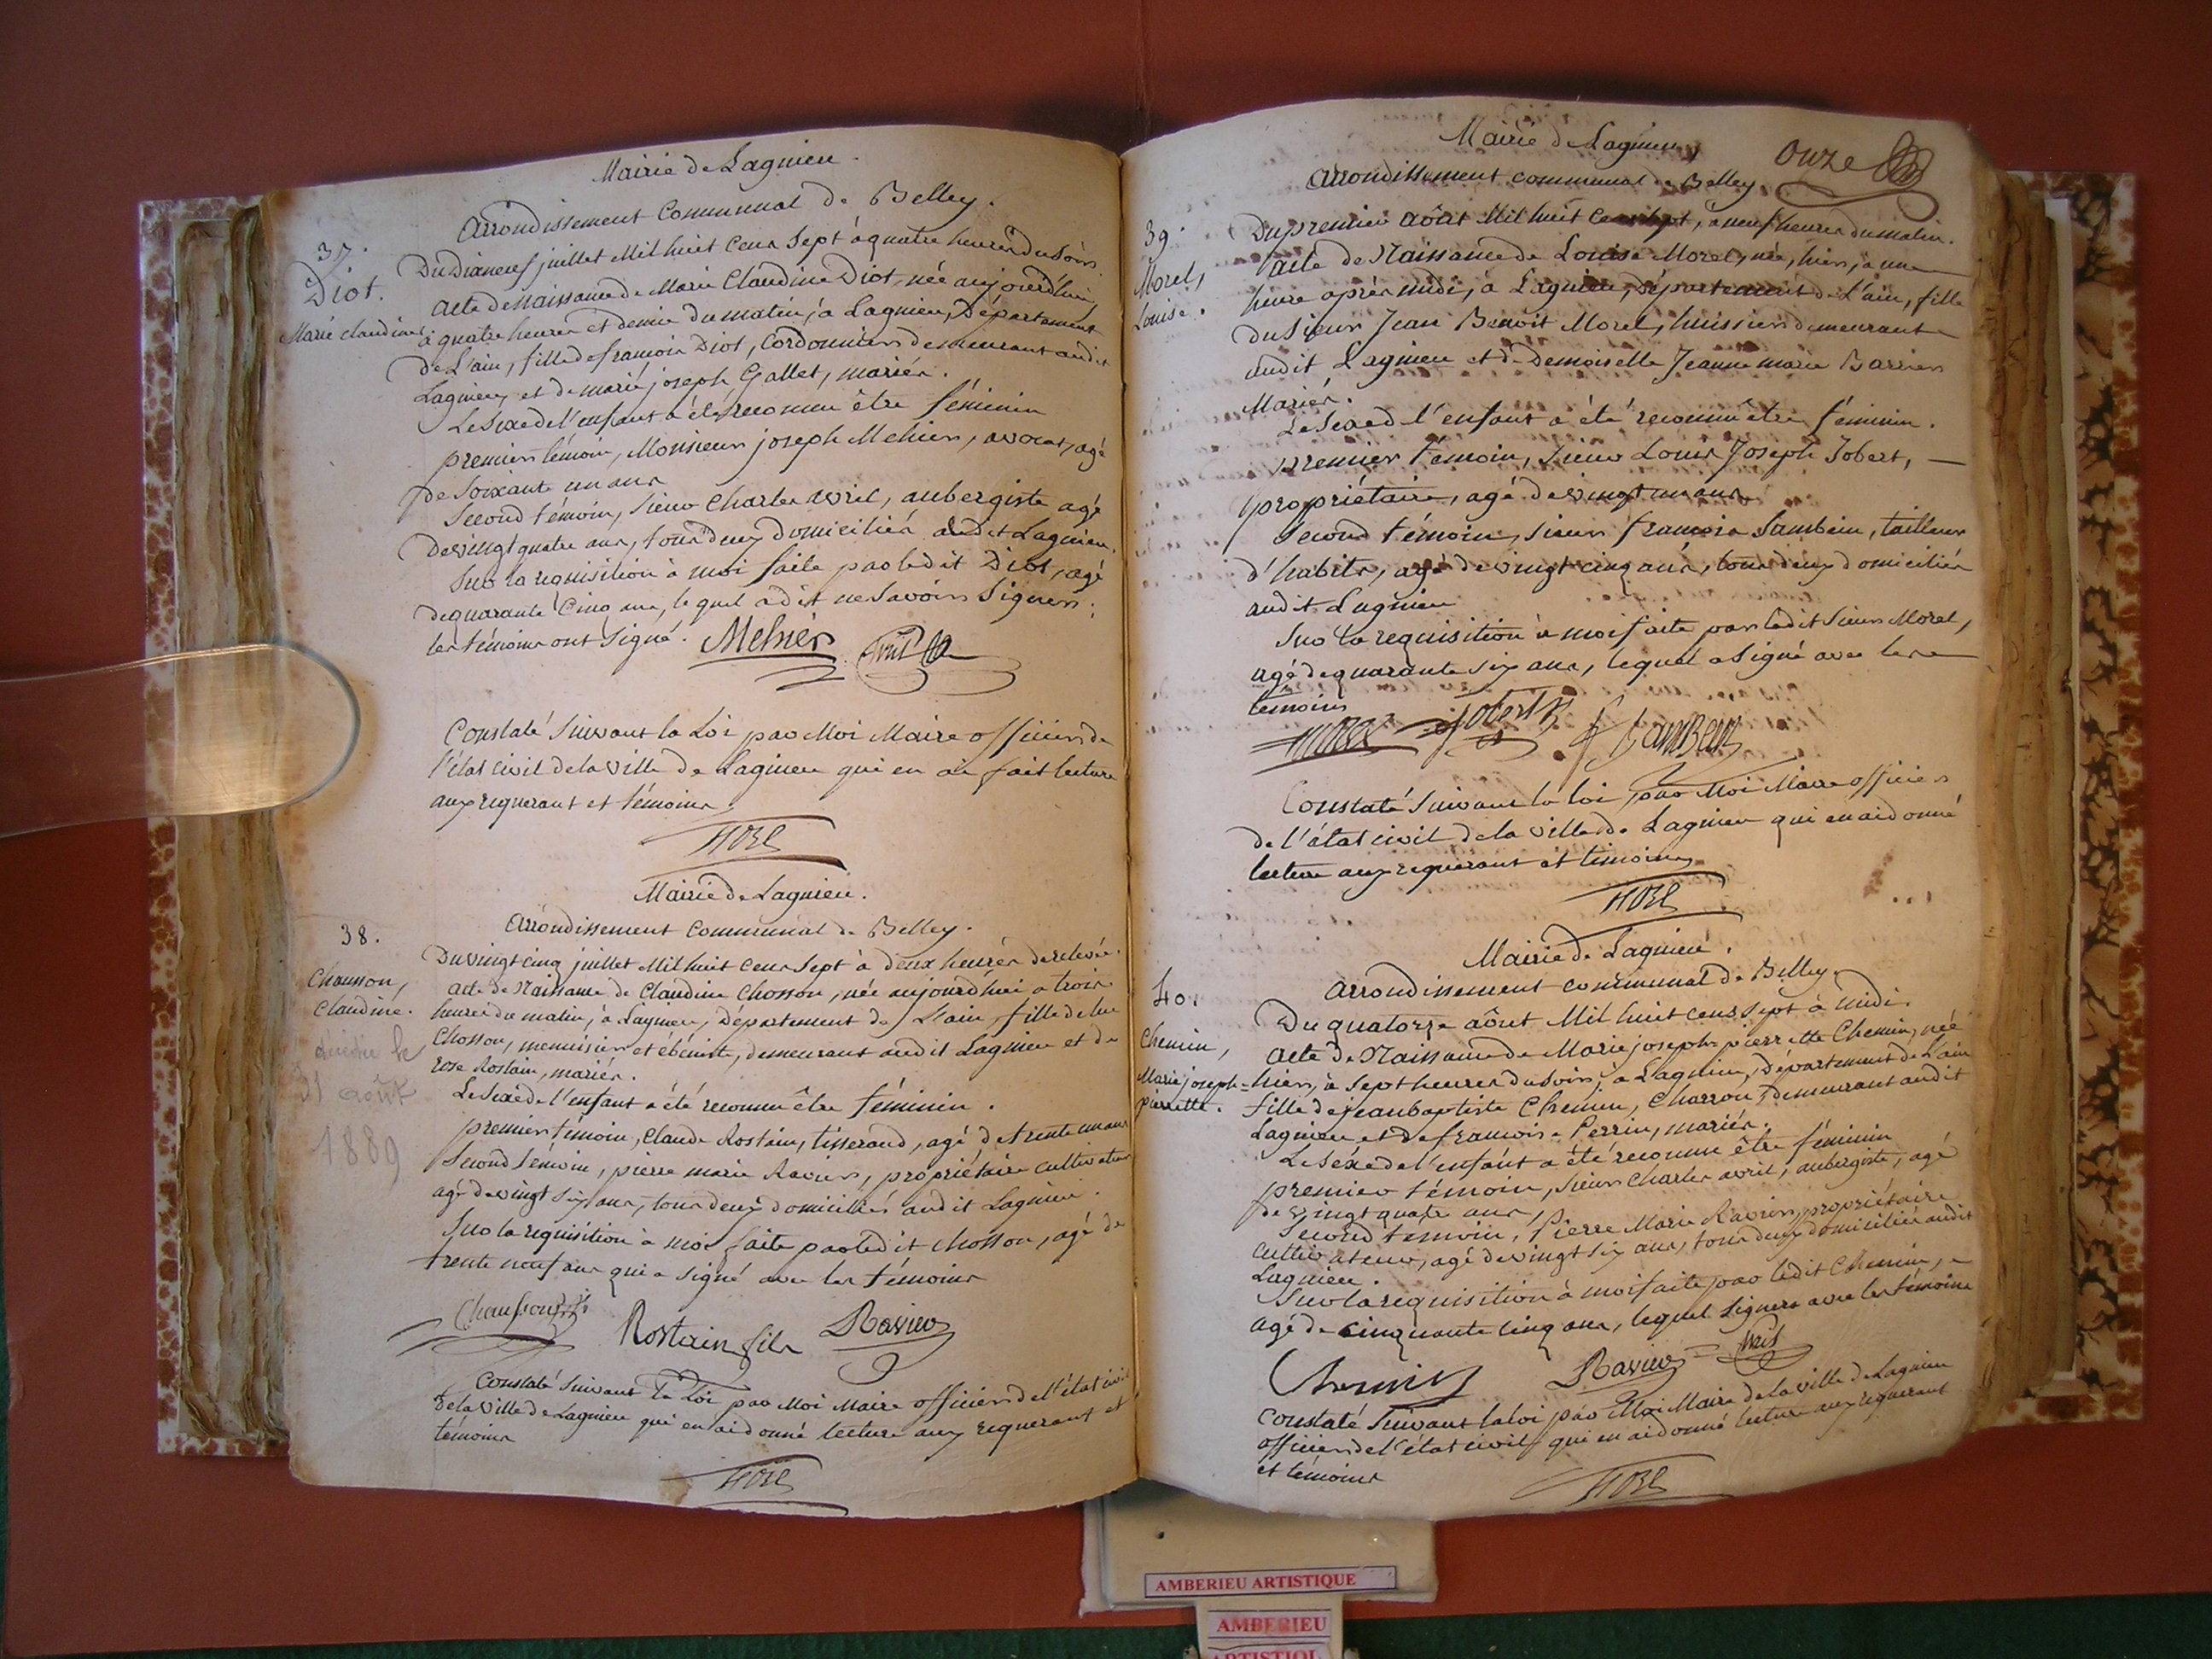 Mairie de Lagnieu.
Arrondissement Communal de Belley.
37.
Diot.
Marie claudine
Du Dixneuf juillet Mil huit cens Sept à quatre heures du Soir.
Acte de Naissance de Marie Claudine Diot, née aujourd'hui,
à quatre heures et demie du matin, à Lagnieu, Département
de L'ain, fille de françois Diot, Cordonnier demeurant audit
Lagnieu, et de marie joseph Gallet, mariés.
Le Sexe de l'enfant a été reconnu être féminin
premier témoin, Monsieur joseph Mehier, avocat, agé
de Soixante un ans
Second témoin, Sieur Charles avril, aubergiste agé
de vingt quatre ans, tous deux domiciliés audit Lagnieu.
Sur la requisition à moi faite par ledit Diot, agé
de quarante Cinq ans, lequel a dit ne Savoir Signer;
les témoins ont Signé. Mehier avril
Constaté Suivant la Loi par Moi Maire officier de
l'état civil de la ville de Lagnieu qui en ai fait lecture
aux requerant et témoins.
Mairie de Lagnieu.
Arrondissement Communal de Belley.
38.
Chausson,
Claudine.
décédée le
31 août
1889
Du vingt cinq juillet Mil huit cens Sept à deux heures de relevée.
acte de Naissance de Claudine Chosson, née aujourd'hui a trois
heures du matin, à Lagnieu, Département de L'ain, fille de
Chosson, menuisier et ébéniste, demeurant audit Lagnieu et de
rose Rostain, mariés.
Le Sexe de l'enfant a été reconnu être féminin.
premier témoin, Claude Rostain, tisserand, agé de trente un ans
Second témoin, pierre marie Ravier, propriétaire cultivateur
agé de vingt Six ans, tous deux domiciliés audit Lagnieu.
Sur la requisition à moi faite par ledit Chosson, agé de
trente neuf ans qui a signé avec les témoins
Chausson Rostain fils Ravier
Constaté Suivant la Loi par Moi Maire officier de l'état civil
de la ville de Lagnieu qui en ai donné lecture aux requerant et
témoins
Mairie de Lagnieu,
Onze
Arrondissement communal de Belley.
39.
Morel,
Louise.
Du premier Août Mil huit Cens Sept, à neuf heures du matin.
acte de Naissance de Louise Morel, née, hier, à une
heure après midi, à Lagnieu, Département de L'ain, fille
du Sieur Jean Benoit Morel, huissier demeurant
audit Lagnieu et de Demoiselle Jeanne marie Barrier
Mariés.
Le Sexe de l'enfant a été reconnu être féminin.
premier témoin, Sieur Louis Joseph Jobert,
propriétaire, agé de vingt un ans
Second témoin, Sieur françois Sambein, tailleur
d'habits, agé de vingt cinq ans, tous deux domiciliés
audit Lagnieu
Sur la requisition à moi faite par ledit Sieur Morel,
agé de quarante Six ans, lequel a Signé avec les
témoins
Morel Jobert f Sambein
Constaté Suivant la loi par Moi Maire officier
de l'état civil de la ville de Lagnieu qui en ai donné
lecture aux requerant et témoins
Mairie de Lagnieu.
Arrondissement communal de Belley.
40.
Chemin,
Marie joseph=
pierrette.
Du quatorze août Mil huit cens Sept à midi.
acte de Naissance de Marie joseph pierrette Chemin, née
hier, à Sept heures du Soir, a Lagnieu, Département de L'ain
fille de jean baptiste Chemin, Charron, demeurant audit
Lagnieu et de françoise Perrin, mariés.
Le Séxe de l'enfant a été reconnu être féminin
premier témoin, Sieur Charles avril, aubergiste, agé
de vingt quatre ans,
Second témoin, Pierre Marie Ravier, propriétaire
cultivateur, agé de vingt Six ans, tous deux domiciliés audit
Lagnieu.
Sur la requisition à moi faite par ledit Chemin,
agé de cinquante cinq ans, lequel Signera avec les témoins
Chemin Ravier avril
Constaté Suivant la loi par Moi Maire de la ville de Lagnieu
officier de l'état civil, qui en ai donné lecture aux requerant
et témoins
AMBERIEU ARTISTIQUE
AMBERIEU